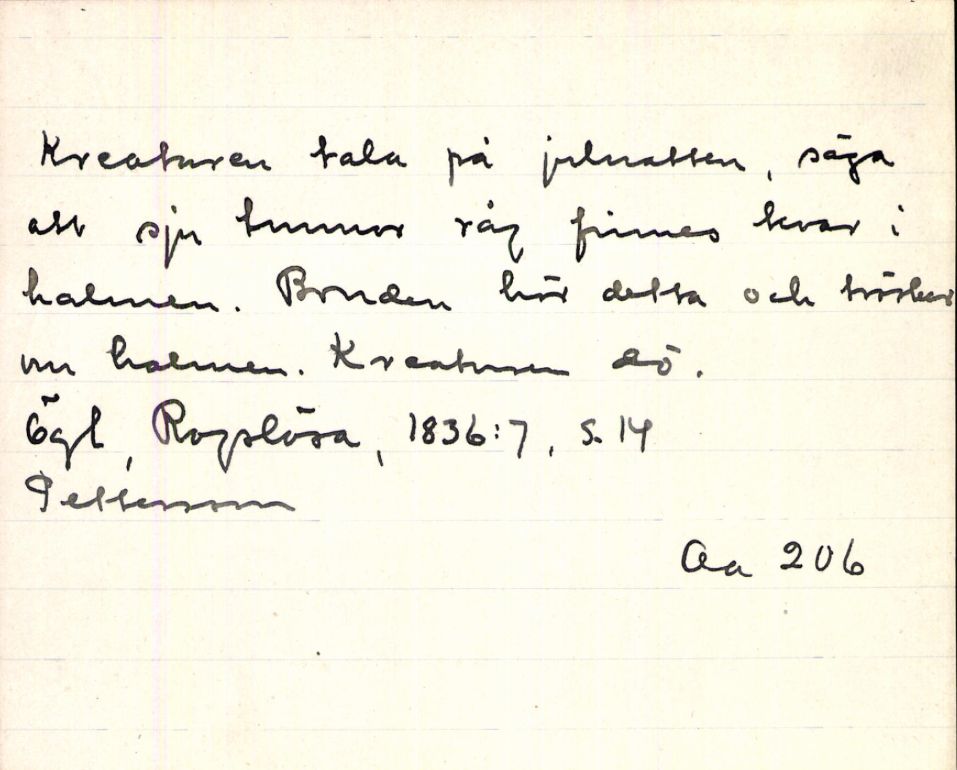 Kreaturen tala på julnatten, säga
att sju tunnor råg finnes kvar i
halmen. Bonden hör detta och tröskar
om halmen. Kreaturen dö.
Ögl, Rogslösa, 1836:7, s. 14
Pettersson
Aa 206